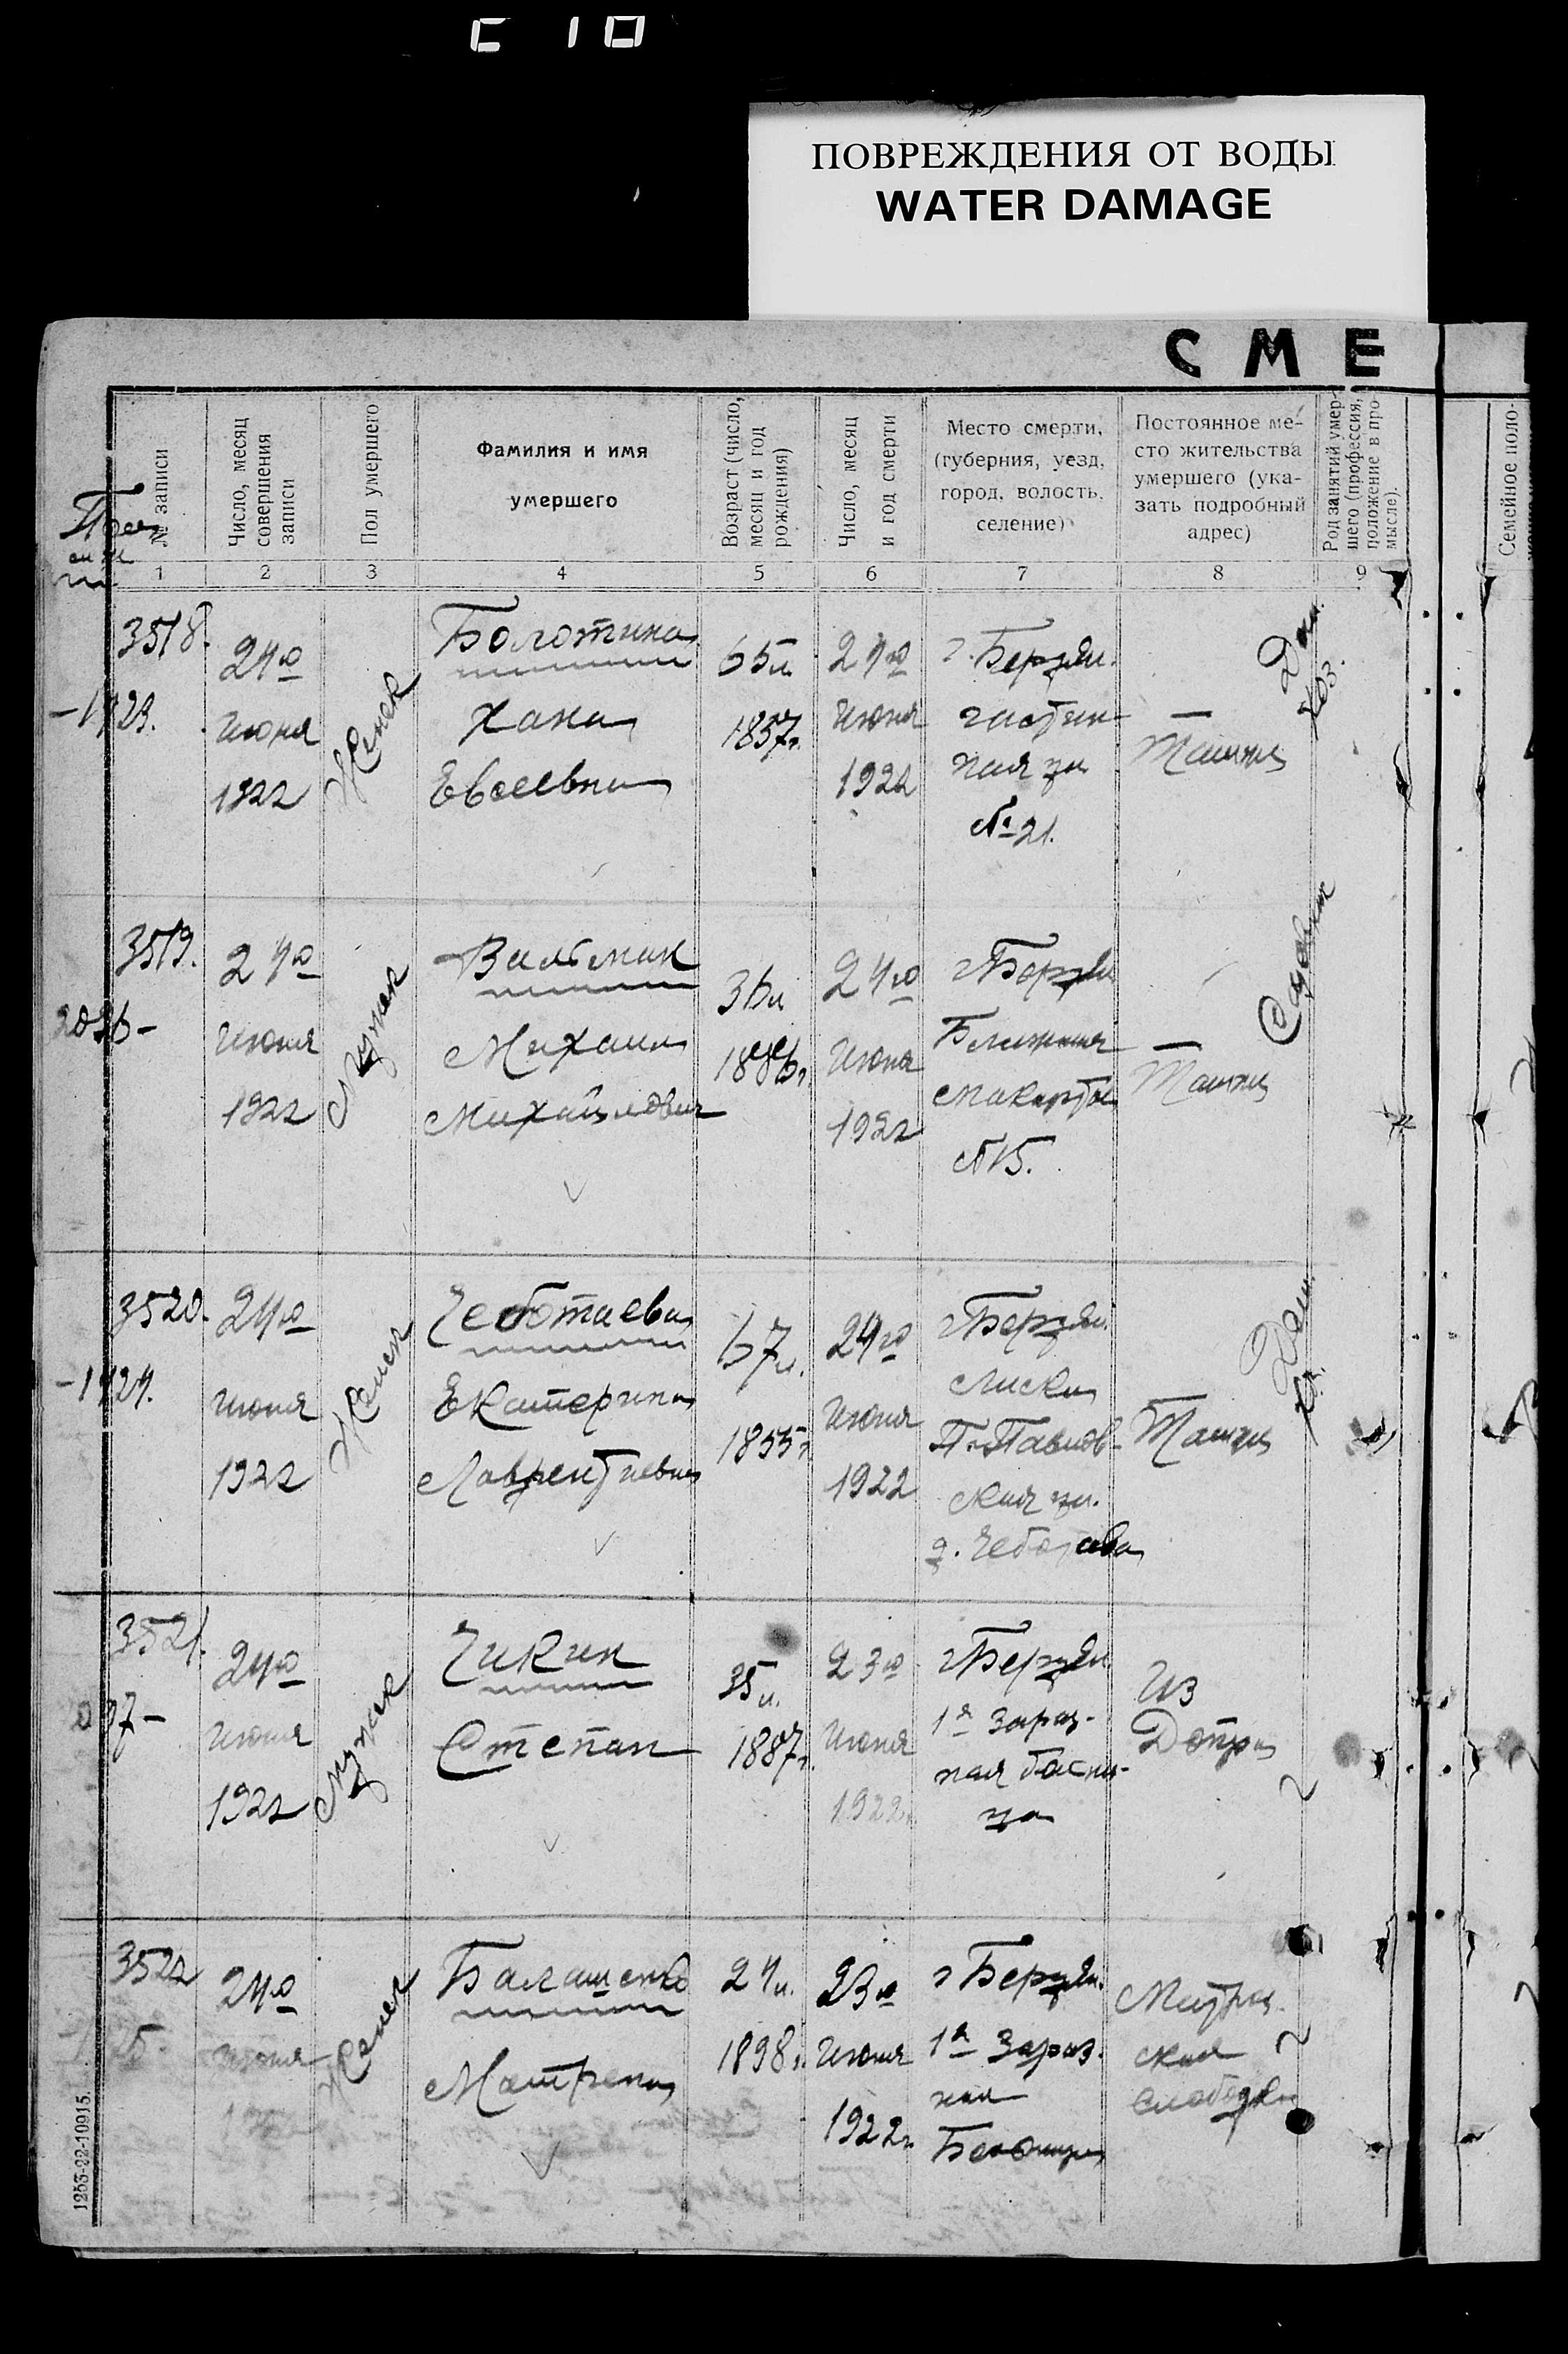 С 10
ПОВРЕЖДЕНИЯ ОТ ВОДЫ
WATER DAMAGE
С М Е
№ записи
Число, месяц
совершения
записи
Пол умершего
Фамилия и имя
умершего
Возраст (число,
месяц и год
рождения)
Число, месяц
и год смерти
Место смерти,
(губерния, уезд,
город, волость,
селение)
Постоянное ме-
сто жительства
умершего (ука-
зать подробный
адрес)
Род занятий умер-
шего (профессия,
положение в про-
мысле).
Семейное поло-
1
2
3
4
5
6
7
8
9
3518.
24го
Июня
1922
Женск
Болотина
Хана
Евсеевна
65л
1857г.
24го
Июня
1922
г. Бердян.
гостин-
ная ул
№ 21.
Тамже
Дом.
хоз.
3519.
24го
Июня
1922
Мужск
Вальман
Михаил
Михайлович
36л
1886г.
24го
Июня
1922
г Бердян
Ближния
Макорты
№ 15.
Тамже
3520.
24го
Июня
1922
Женск
Чеботаева
Екатерина
Лаврентиевна
67л.
1855г
24го
Июня
1922
г Бердян.
Лиски
П-Павлов-
ская ул.
д. Чеботаева
Тамже
Дом.
хоз.
3521.
24го
Июня
1922
Мужск
Чикин
Степан
35л.
1887г.
23го
Июня
1922г.
г Бердян
1я Зараз-
ная больни-
ца
Из
Допра
3522
24го
Июня
Женск
Балашенко
Матрена
24л.
1898г.
23го
Июня
1922г.
г Бердян.
1я Зараз.
ная
Больница
слободка
1253-22-10915.